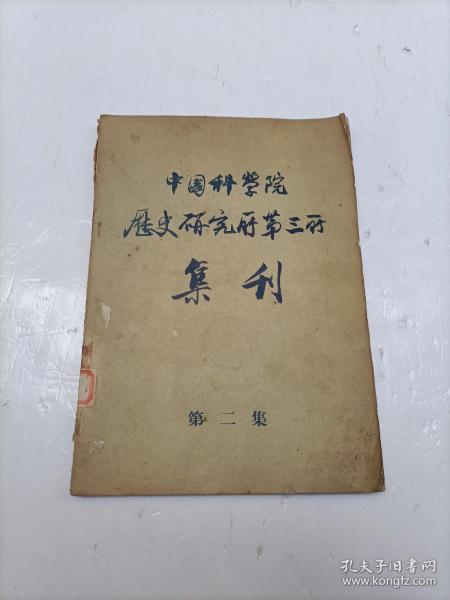 中国科学院
歷史研究所第三所
集刊
第二集
孔夫子旧书网
www.kongfz.com